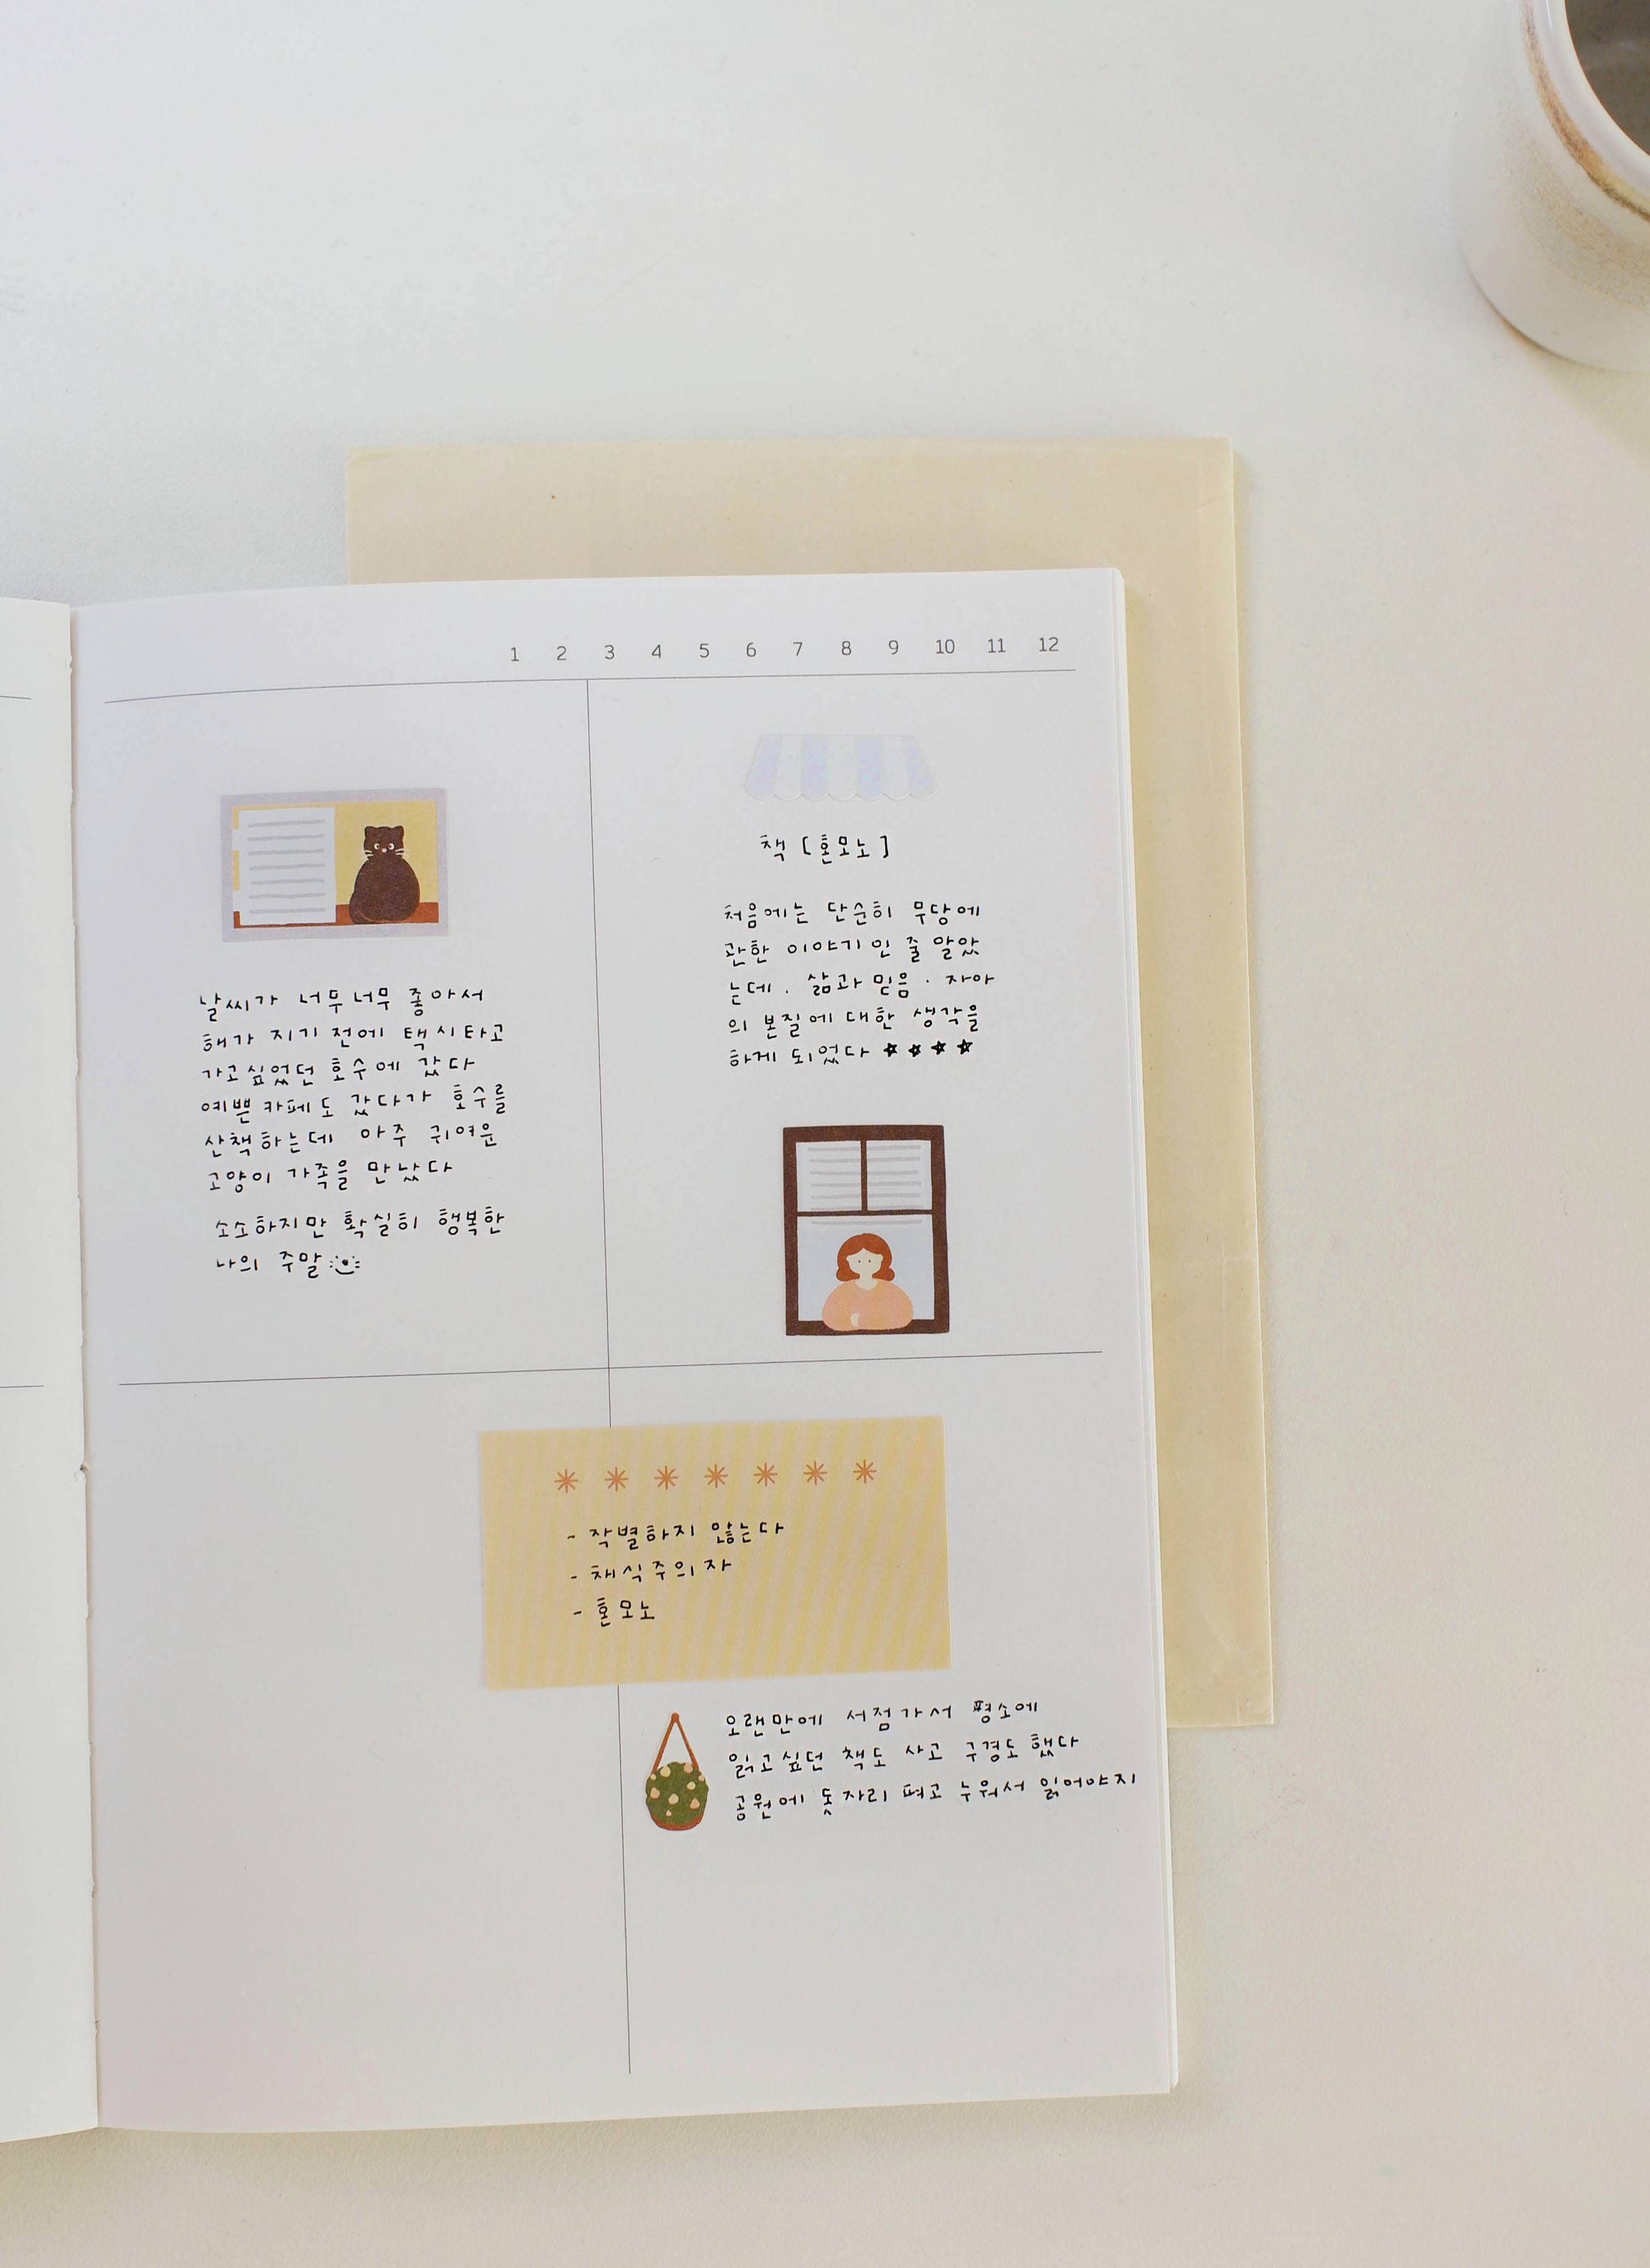 1 2 3 4 5 6 7 8 9 10 11 12
날씨가 너무너무 좋아서
해가 지기 전에 택시타고
가고싶었던 호수에 갔다
예쁜 카페도 갔다가 호수를
산책하는데 아주 귀여운
고양이 가족을 만났다
소소하지만 확실히 행복한
나의 주말
책 [혼모노]
처음에는 단순히 무당에
관한 이야기인 줄 알았
는데. 삶과 믿음 · 자아
의 본질에 대한 생각을
하게 되었다 ★★★★
- 작별하지 않는다
- 채식주의자
- 혼모노
오랜만에 서점가서 평소에
읽고싶던 책도 사고 구경도 했다
공원에 돗자리 펴고 누워서 읽어야지